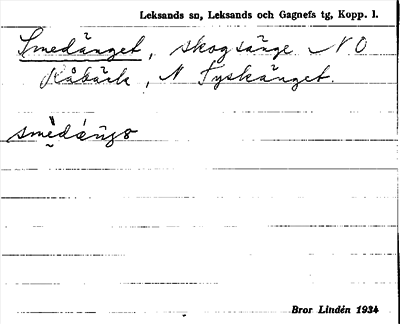 Leksands sn, Leksands och Gagnefs tg, Kopp. l.
Smedänget, skogsänge NO
Råbäck, N Tyskänget.
smedäŋgə
Bror Lindén 1934